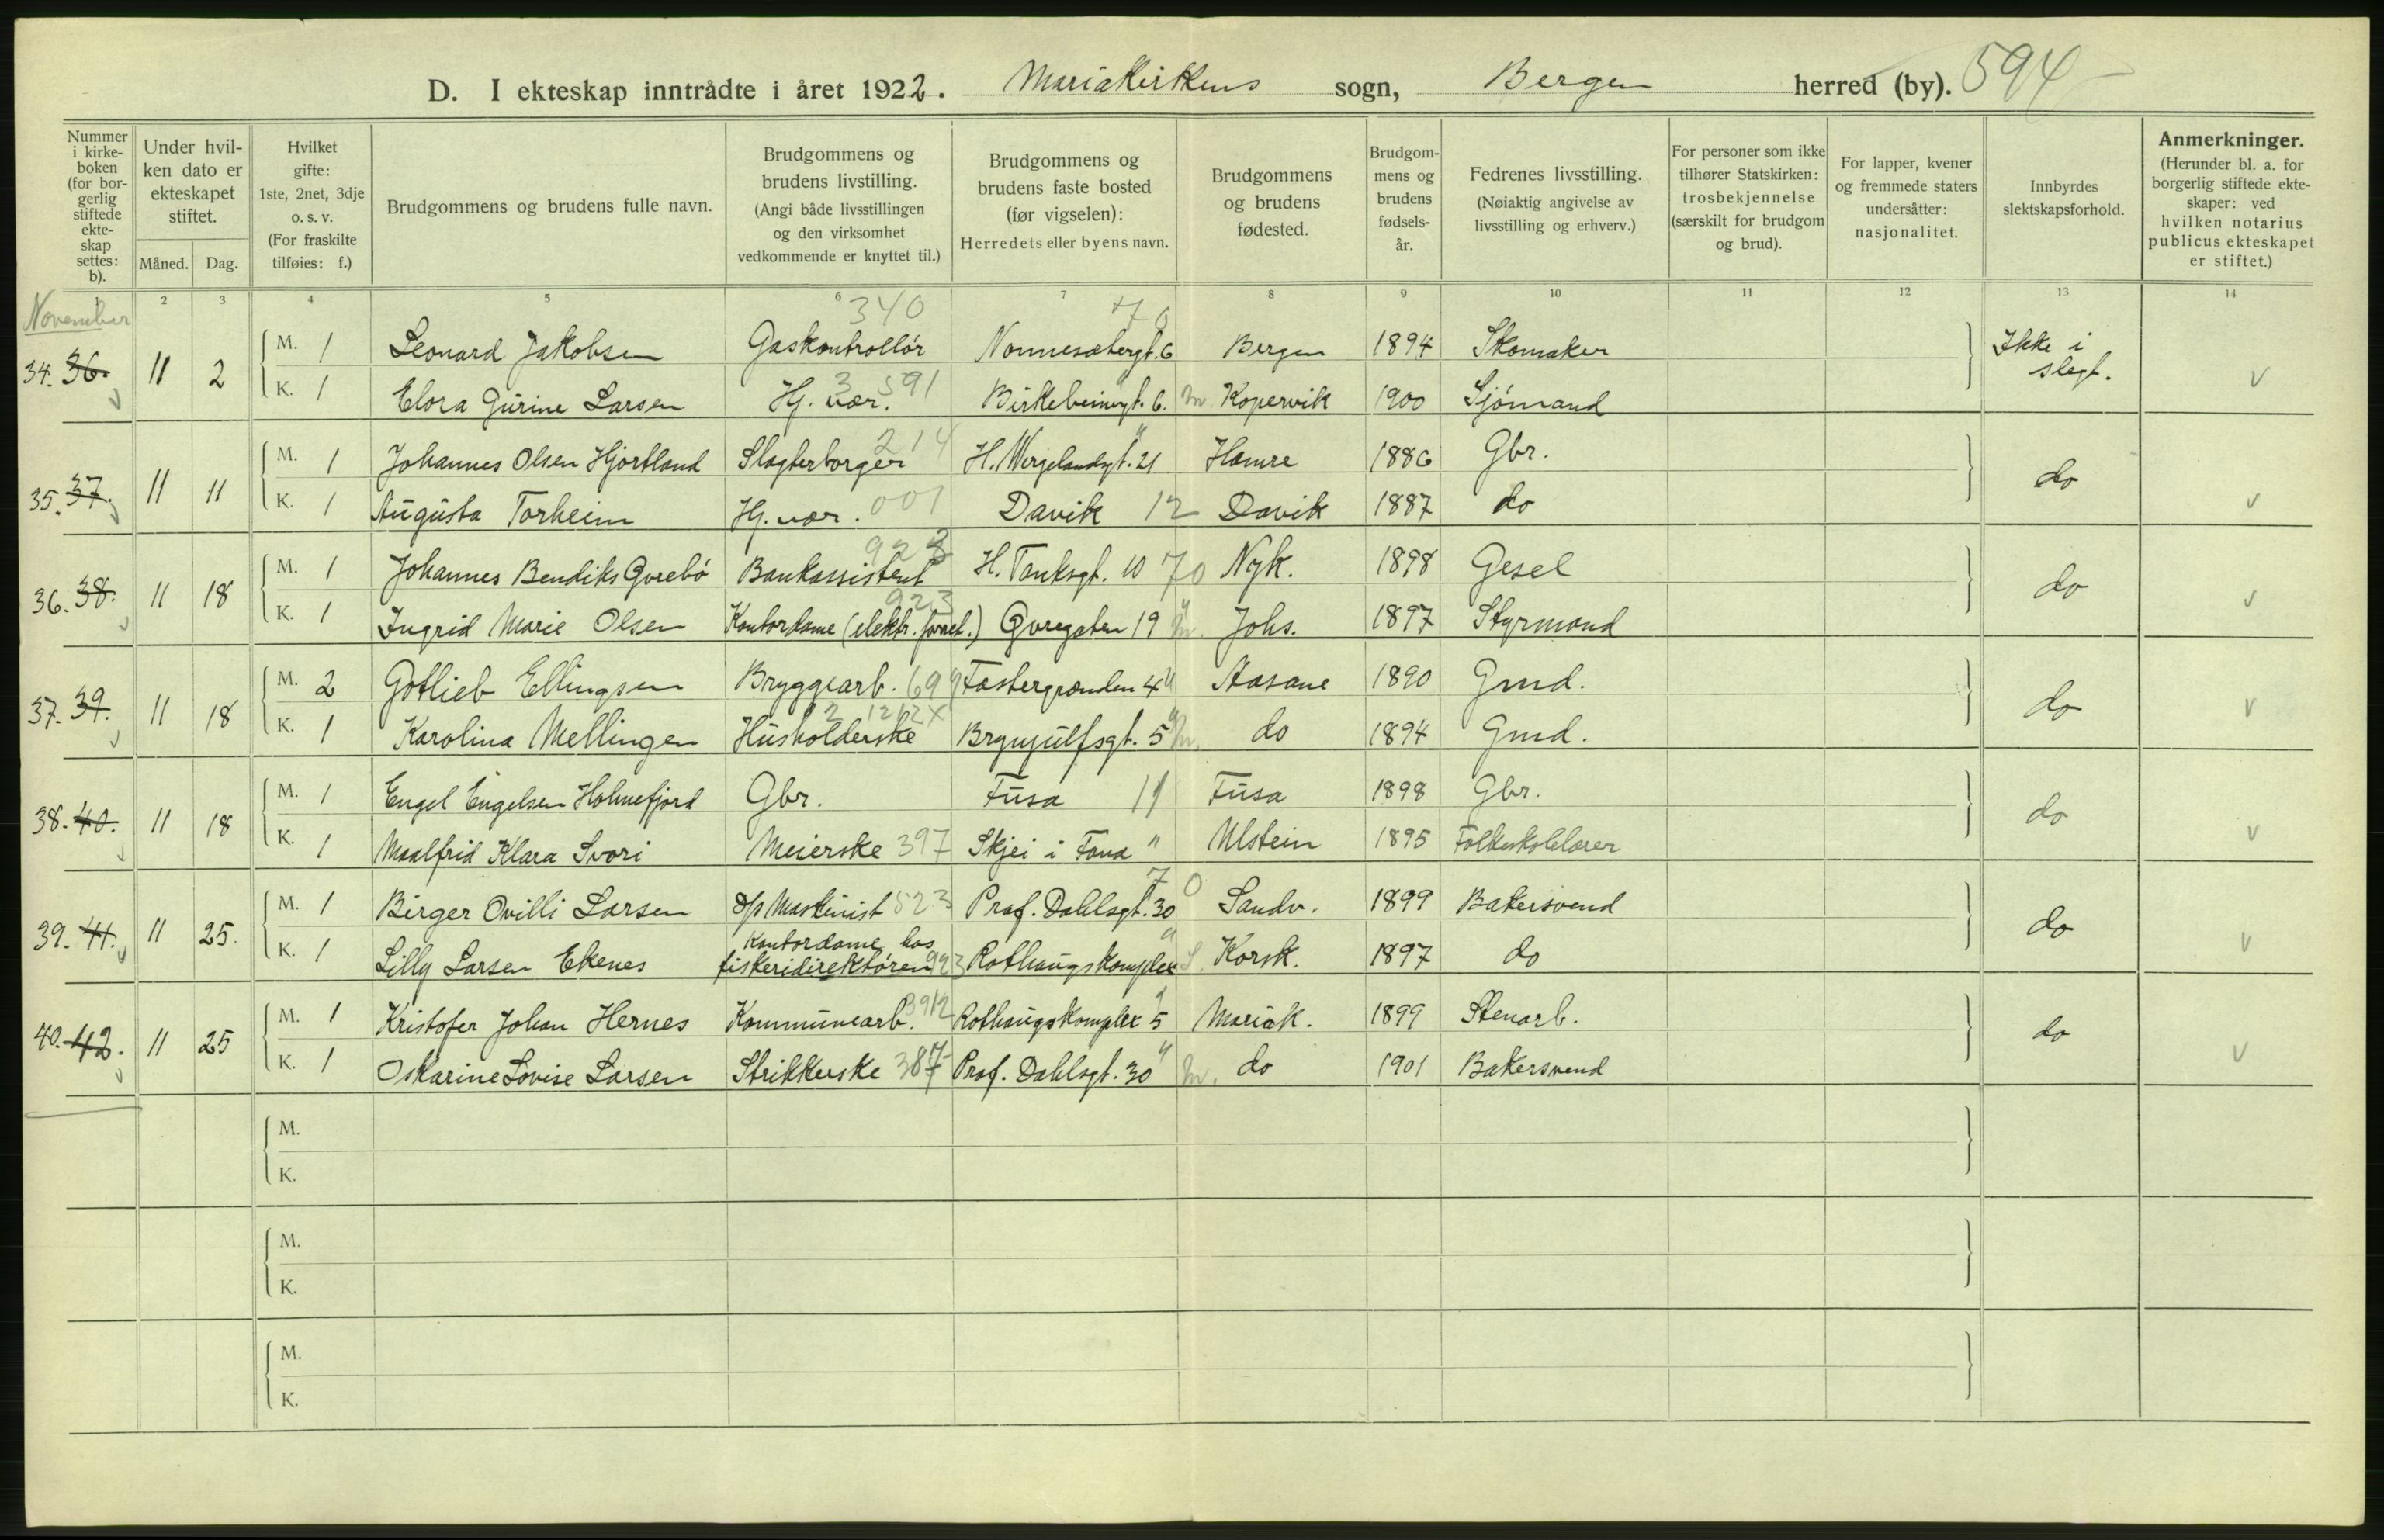 D. I ekteskap inntrådte i året 1922. Mariakirkens sogn, Bergen herred (by). 594
Nummer i kirkeboken (for borgerlig stiftede ekteskap settes: b).
Under hvilken dato er ekteskapet stiftet.
Måned. Dag.
Hvilket gifte: 1ste, 2net, 3dje o. s. v. (For fraskilte tilføies: f.)
Brudgommens og brudens fulle navn.
Brudgommens og brudens livstilling. (Angi både livsstillingen og den virksomhet vedkommende er knyttet til.)
Brudgommens og brudens faste bosted (før vigselen): Herredets eller byens navn.
Brudgommens og brudens fødested.
Brudgommens og brudens fødselsår.
Fedrenes livsstilling. (Nøiaktig angivelse av livsstilling og erhverv.)
For personer som ikke tilhører Statskirken: trosbekjennelse (særskilt for brudgom og brud).
For lapper, kvener og fremmede staters undersåtter: nasjonalitet.
Innbyrdes slektskapsforhold.
Anmerkninger. (Herunder bl. a. for borgerlig stiftede ekteskaper: ved hvilken notarius publicus ekteskapet er stiftet.)
1 2 3 4 5 6 7 8 9 10 11 12 13 14
November 340 70
34. 36. 11 2 M. 1 Leonard Jakobsen Gaskontrollör Nonnesætergt. 6 Bergen 1894 Skomaker Ikke i slegt.
K. 1 Clora Gurine Larsen Hj. vær. 3 591 Birkebeinergt. 6. Kopervik 1900 Sjömand
35. 37. 11 11 M. 1 Johannes Olsen Hjortland Slagterborger 214 H. Wergelandsgt. 21 Hamre 1886 Gbr. do
K. 1 Augusta Torheim Hj. vær. 001 Davik 12 Davik 1887 do
36. 38. 11 18 M. 1 Johannes Bendiks Qvrebö Bankassistent 923 H. Tanksgt. 10 70 Nyk. 1898 Gesel do
K. 1 Ingrid Marie Olsen Kontordame (elektr. forret.) 923 Øvregaten 19 Johs. 1897 Styrmand
37. 39. 11 18 M. 2 Gotlieb Ellingsen Bryggearb. 699 Fastergrænden 4 Aasane 1890 Gmd. do
K. 1 Karolina Mellingen Husholderske Brynjulfsgt. 5 do 1894 Gmd.
38. 40. 11 18 M. 1 Engel Engelsen Holmefjord Gbr. Fusa 11 Fusa 1898 Gbr. do
K. 1 Maalfrid Klara Svori Meierske 397 Skjei i Fana " Ulstein 1895 Folkeskolelærer
39. 41. 11 25. M. 1 Birger Ovilli Larsen d/s Maskinist 523 Prof. Dahlsgt. 30 70 Sandv. 1899 Bakersvend do
K. 1 Lilly Larsen Ekenes Kontordame hos fiskeridirektören 923 Rothaugskomplex Korsk. 1897 do
40. 42. 11 25 M. 1 Kristofer Johan Hernes Kommunearb. 3912 Rothaugskomplex 5 Mariak. 1899 Stenarb. do
K. 1 Oskarine Lovise Larsen Strikkerske 387 Prof. Dahlsgt. 30 do 1901 Bakersvend
M.
K.
M.
K.
M.
K.